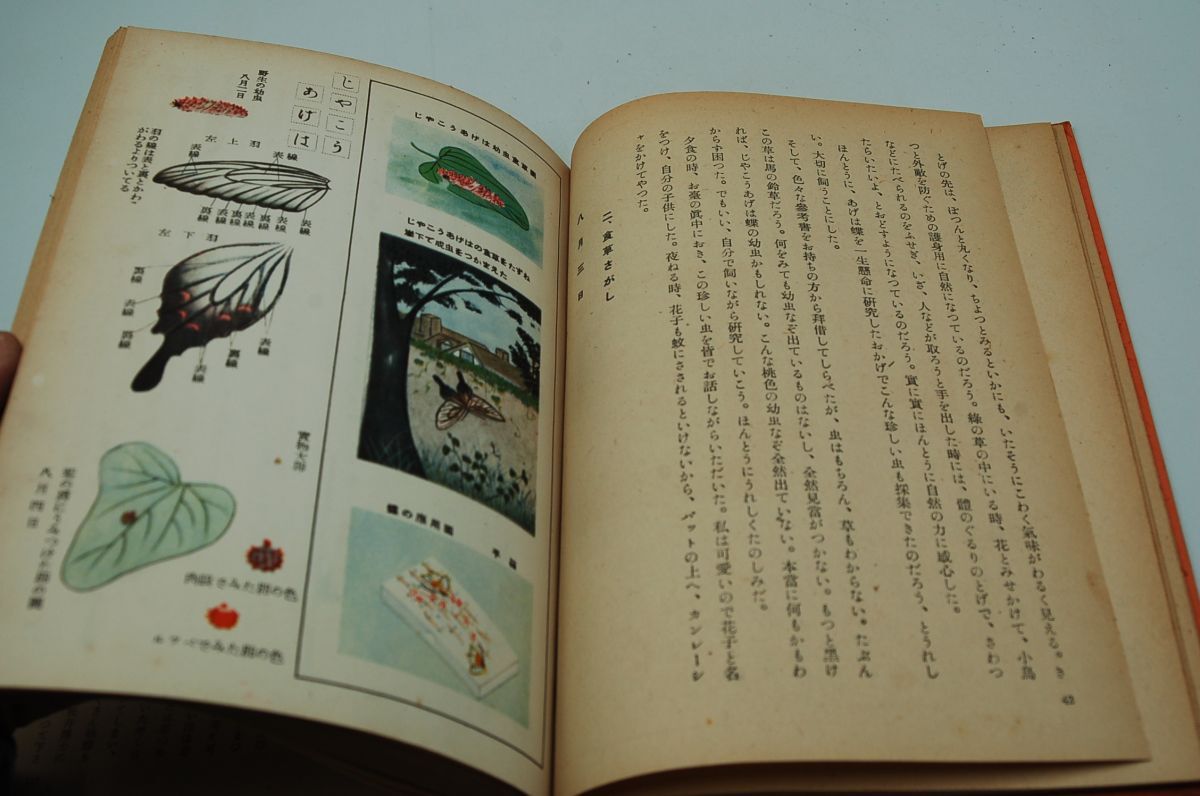 とげの先は、ぽつんと丸くなり、ちよつとみるといかにも、いたそうにこわく氣味がわるく見える。き
つと外敵を防ぐための護身用に自然になつているのだろう。綠の草の中にいる時、花とみせかけて、小鳥
などにたべられるのをふせぎ、いざ、人などが取ろうと手を出した時には、體のぐるりのとげで、さわつ
たらいたいよ、とおどすようになつているのだろう。實に實にほんとうに自然の力に感心した。
ほんとうに、あげは蝶を一生懸命に研究したおかげでこんな珍しい虫も採集できたのだろう、とうれし
い。大切に飼うことにした。
そして、色々な參考書をお持ちの方から拜借してしらべたが、虫はもちろん、草もわからない。たぶん
この草は馬の鈴草だろう。何をみても幼虫なぞ出ているものはないし、全然見當がつかない。もつと黑け
れば、じやこうあげは蝶の幼虫かもしれない。こんな桃色の幼虫なぞ全然出ていない。本當に何もかもわ
からず困つた。でもいい、自分で飼いながら研究していこう。ほんとうにうれしくたのしみだ。
夕食の時、お臺の眞中におき、この珍しい虫を皆でお話しながらいただいた。私は可愛いので花子と名
をつけ、自分の子供にした。夜ねる時、花子も蚊にさされるといけないから、バットの上へ、カンレーシ
ャをかけてやつた。
二、食草さがし
八月三日
42
じやこう
あげは
野生の幼虫
八月二日
左上羽
表線
表線
裏線
裏線
表線
裏線
表線
裏線
羽の線は表と裏とかわ
がわるよりついてる
左下羽
裏線
表線
裏線
表線
裏線
表線
實物大
八月四日
肉眼でみた卵の色
ルーペでみた卵の色
じやこうあげは幼虫食草圖
じやこうあげはの食草をたずね
崖下で成虫をつかまえた
蝶の應用圖